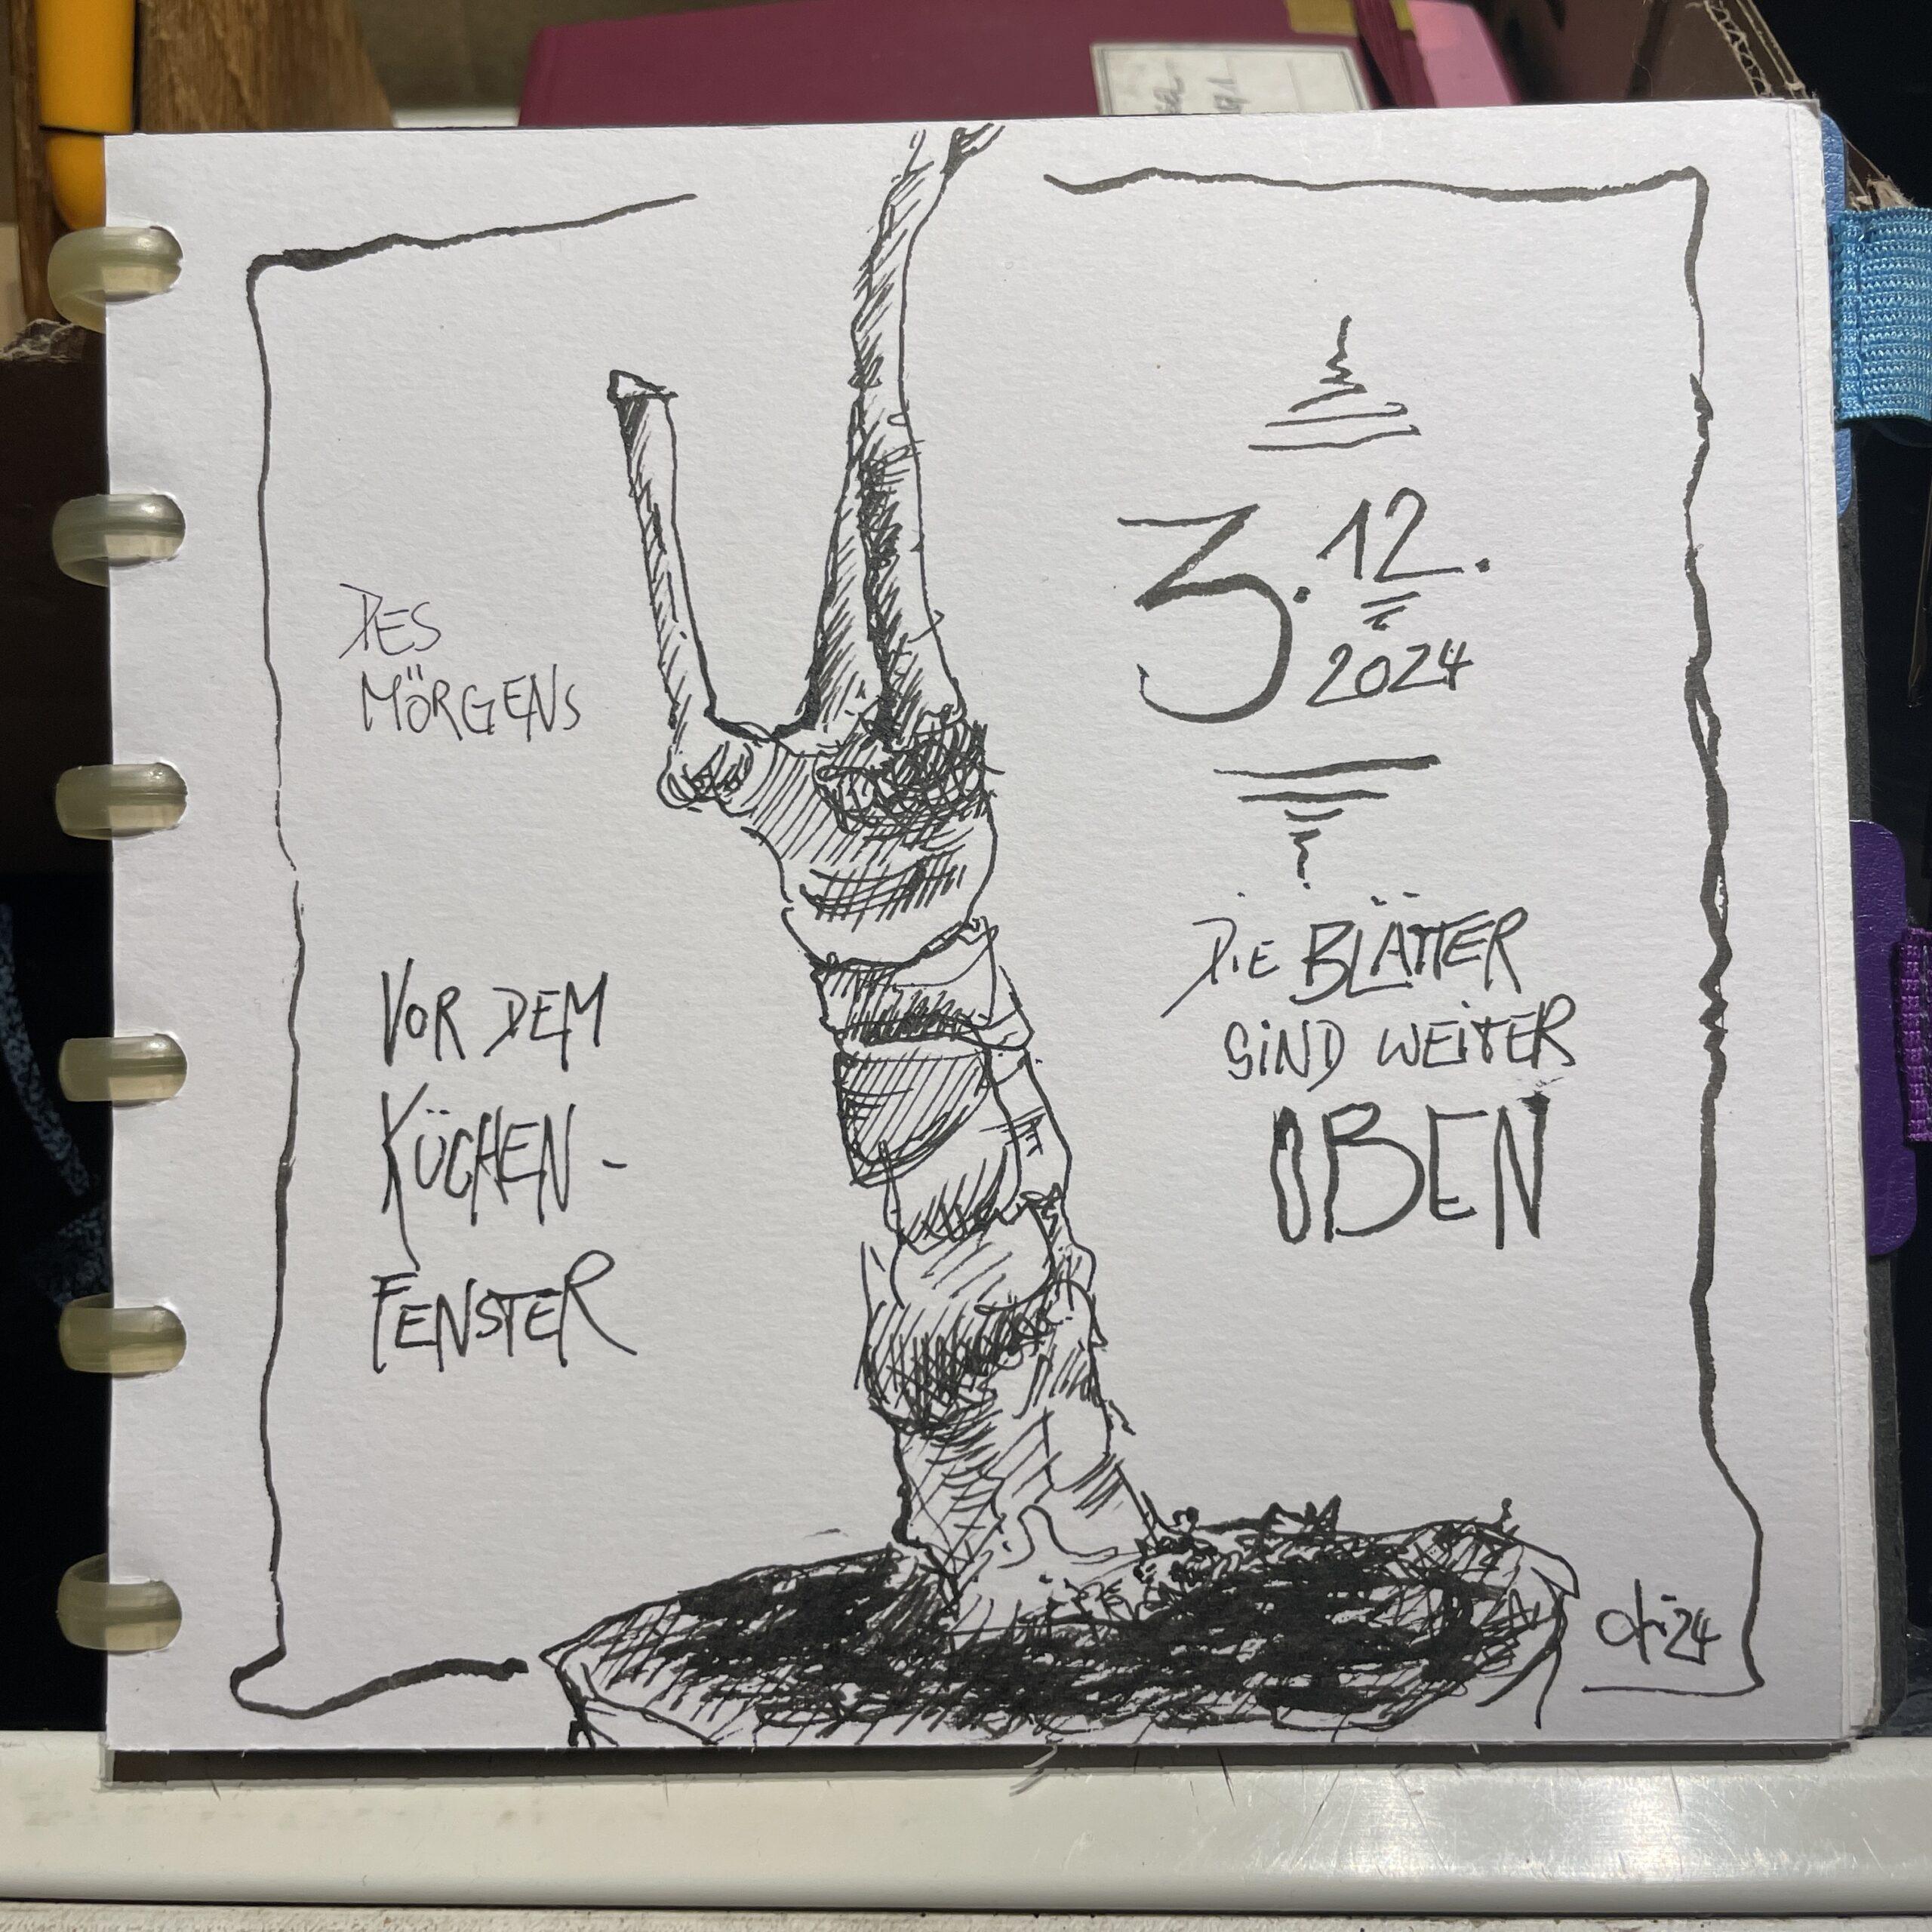 DES
MÖRGENS
VOR DEM
KÜCHEN-
FENSTER
3.12.
2024
DIE BLÄTTER
SIND WEITER
OBEN